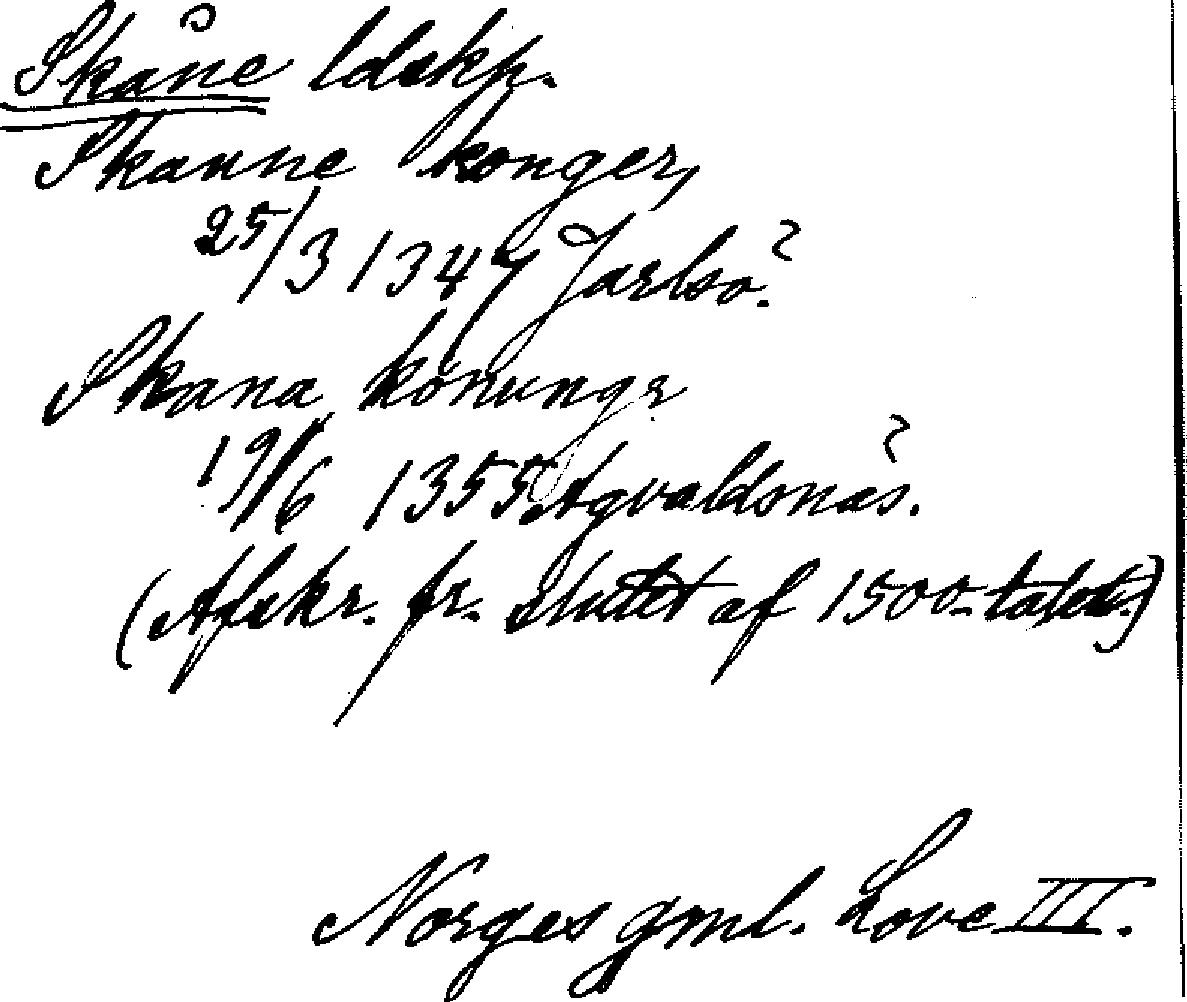 Skåne ldskp.
Skanne konger,
25/3 1347 Jarlsö.
Skana konungr
19/6 1355 Agvaldsnäs.
(Afskr. fr. slutet af 1500-talet.)
Norges gml. Love III.